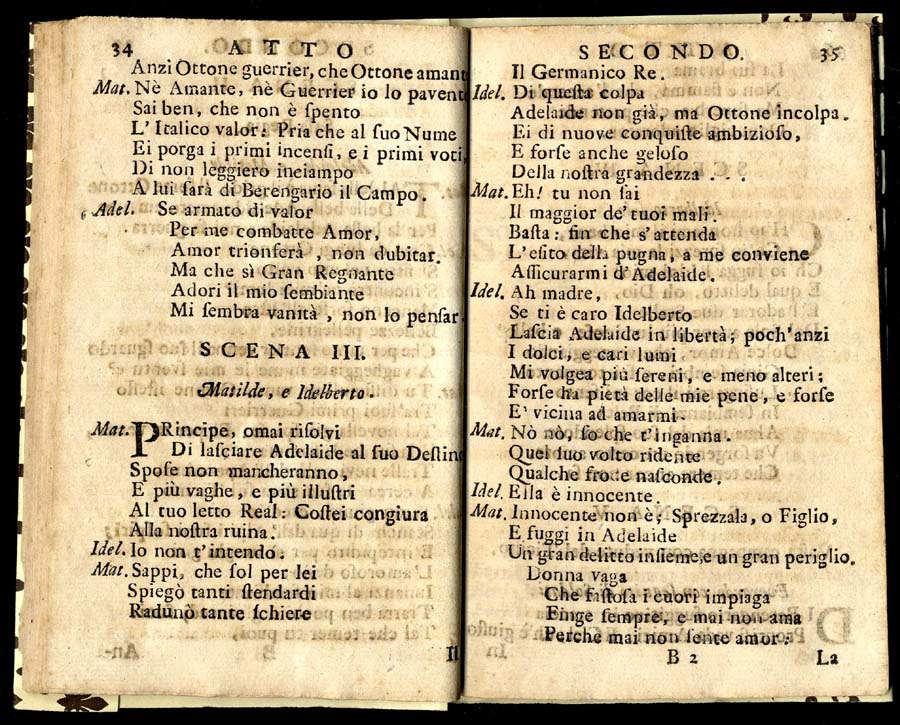 34 ATTO
Anzi Ottone guerrier, che Ottone amant
Mat. Nè Amante, nè Guerrier io lo pavent
Sai ben, che non è ſpento
L' Italico valor: Pria che al ſuo Nume
Ei porga i primi incenſi, e i primi voti,
Di non leggiero inciampo
A lui ſarà di Berengario il Campo.
Adel. Se armato di valor
Per me combatte Amor,
Amor trionferà , non dubitar.
Ma che sì Gran Regnante
Adori il mio ſembiante
Mi ſembra vanità , non lo penſar
SCENA III.
Matilde, e Idelberto.
Mat. PRincipe, omai riſolvi
Di laſciare Adelaide al ſuo Deſtin
Spoſe non mancheranno,
E più vaghe, e più illuſtri
Al tuo letto Real: Coſtei congiura
Alla noſtra ruina.
Idel. Io non t'intendo.
Mat. Sappi, che ſol per lei
Spiegò tanti ſtendardi
Radunò tante ſchiere
Il
SECONDO. 35
Il Germanico Re.
Idel. Di queſta colpa
Adelaide non già, ma Ottone incolpa.
Ei di nuove conquiſte ambizioſo,
E forſe anche geloſo
Della noſtra grandezza . . .
Mat. Eh! tu non ſai
Il maggior de' tuoi mali.
Baſta: fin che s'attenda
L'eſito della pugna, a me conviene
Aſſicurarmi d'Adelaide.
Idel. Ah madre,
Se ti è caro Idelberto
Laſcia Adelaide in libertà; poch'anzi
I dolci, e cari lumi
Mi volgea più ſereni, e meno alteri;
Forſe ha pietà delle mie pene, e forſe
E' vicina ad amarmi.
Mat. Nò nò, ſo che t'inganna.
Quel ſuo volto ridente
Qualche frode naſconde.
Idel. Ella è innocente.
Mat. Innocente non è; Sprezzala, o Figlio,
E fuggi in Adelaide
Un gran delitto inſieme, e un gran periglio.
Donna vaga
Che faſtoſa i cuori impiaga
Finge ſempre, e mai non ama
Perche mai non ſente amor:
B 2 La